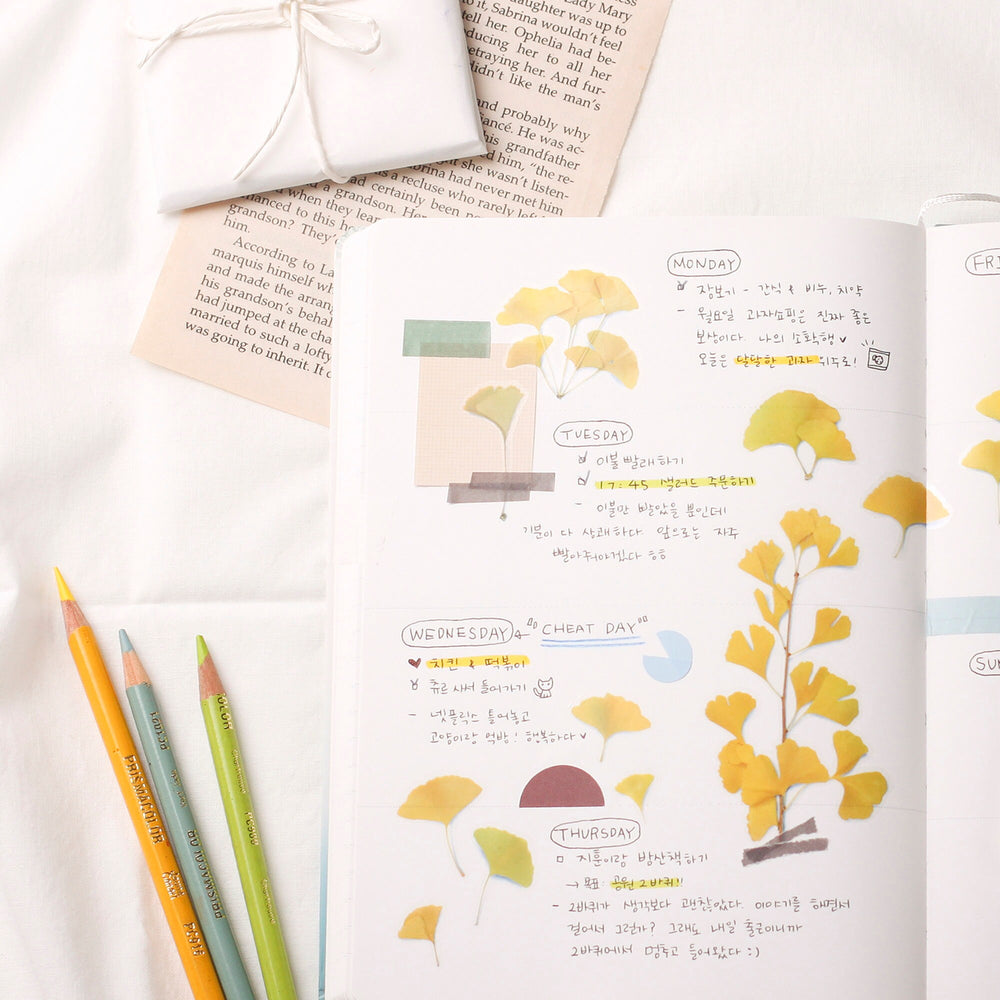 Lady Mary
to it, Sabrina wouldn't feel
tell her. Ophelia had be-
ducing her to all her
betraying her. And fur-
didn't like the man's
and probably why
fiancé. He was ac-
his grandfather
him, "the re-
but she wasn't listen-
Sabrina had never met him
as a recluse who rarely left
had certainly been
a grandson. Her
when they
chanced to this
grandson? They
him.
According to La
marquis himself
and made the
his grandson's
had jumped at the
married to such a lofty
was going to inherit. It
MONDAY
장보기 - 간식 & 비누, 치약
- 월요일 과자쇼핑은 진짜 좋은
보상이다. 나의 소확행
오늘은 달달한 과자 위주로!
TUESDAY
이불 빨래하기
17:45 샐러드 주문하기
- 이불만 빨았을 뿐인데
기분이 다 상쾌하다. 앞으로는 자주
빨아줘야겠다 ㅎㅎ
WEDNESDAY "CHEAT DAY"
치킨 & 떡볶이
츄르 사서 들어가기
- 넷플릭스 틀어놓고
고양이랑 먹방! 행복하다
THURSDAY
지훈이랑 밤산책하기
→ 목표: 공원 2바퀴!!
- 2바퀴가 생각보다 괜찮았다. 이야기를 하면서
걸어서 그런가? 그래도 내일 출근이니까
2바퀴에서 멈추고 들어왔다 :)
FRI
SU
PRISMACOLOR